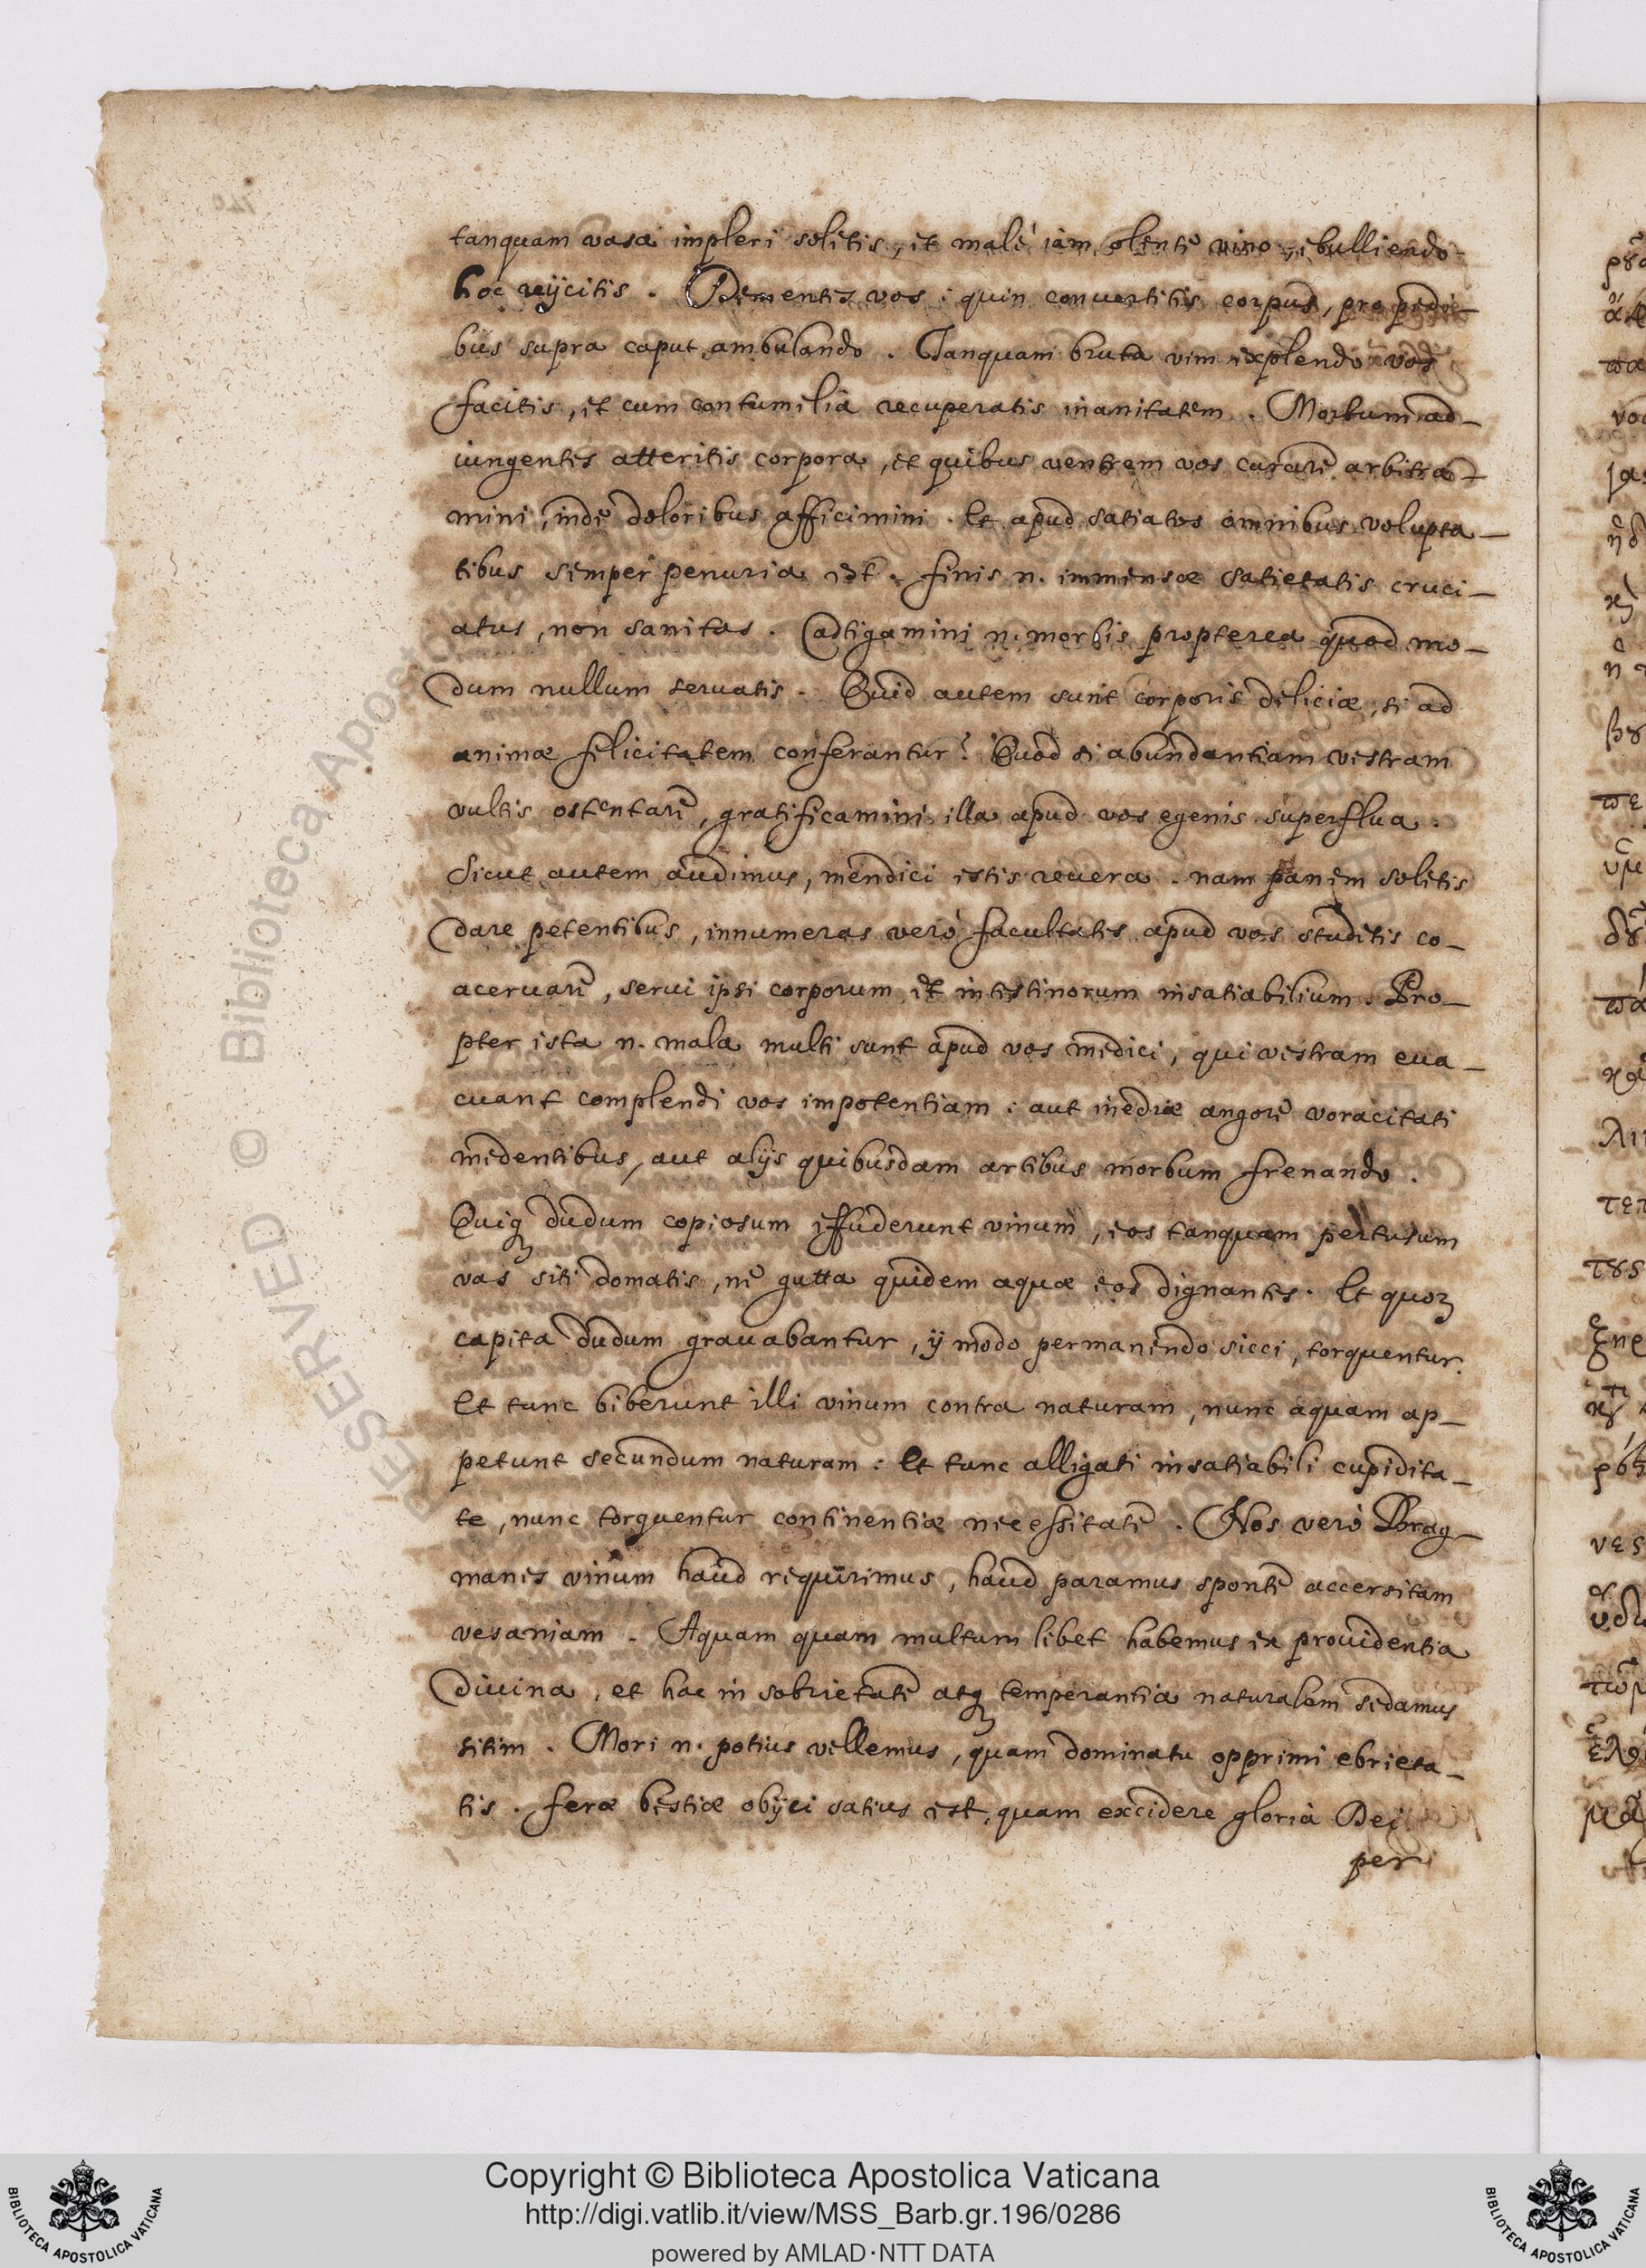 tanquam vasa impleri soletis, et malè iam olente vino, ebulliendo
hoc reijcitis. Dementes vos: quin convertitis corpus, pro pedi-
bus supra caput ambulando. Tanquam bruta vim explendo vos
facitis, et cum contumelia recuperatis inanitatem. Morbum ad-
iungentes atteritis corpora, et quibus ventrem vos curare arbitra-
mini, inde doloribus afficimini. Et apud satiatos omnibus volupta-
tibus semper penuria est. finis n. immensæ satietatis cruci-
atus, non sanitas. Adtigamini n. morbis propterea quod mo-
dum nullum seruatis. Quid autem sunt corporis deliciæ, si ad
animæ felicitatem conferantur? Quod si abundantiam vestram
vultis ostentare, gratificamini illa apud vos egenis superflua.
Sicut autem audimus, mendici estis reuera. nam panem soletis
dare petentibus, innumeras verò facultates apud vos studetis co-
aceruare, serui ipsi corporum et intestinorum insatiabilium. Pro-
pter ista n. mala multi sunt apud vos medici, qui vestram eua-
cuant complendi vos impotentiam: aut inediæ angore voracitati
medentibus, aut alijs quibusdam artibus morbum frenando.
Quiq dudum copiosum effuderunt vinum, eos tanquam pertusum
vas siti domatis, ne gutta quidem aquæ eos dignantes. Et quoꝝ
capita dudum grauabantur, ij modo permanendo sicci, torquentur.
Et tunc biberunt illi vinum contra naturam, nunc aquam ap-
petunt secundum naturam: Et tunc alligati insatiabili cupidita-
te, nunc torquentur continentiæ necessitate. Nos verò Brag-
manes vinum haud requirimus, haud paramus sponte accersitam
vesaniam. Aquam quam multum libet habemus ex prouidentia
diuina, et hac in sobrietate atq temperantia naturalem sedamus
sitim. Mori n. potius vellemus, quam dominatu opprimi ebrieta-
tis. feræ bestiæ obijci satius est, quam excidere gloria Dei
per
RESERVED © Biblioteca Apostolica
Copyright © Biblioteca Apostolica Vaticana
http://digi.vatlib.it/view/MSS_Barb.gr.196/0286
powered by AMLAD·NTT DATA
BIBLIOTECA APOSTOLICA VATICANA
BIBLIOTECA APOSTOLICA VATICANA